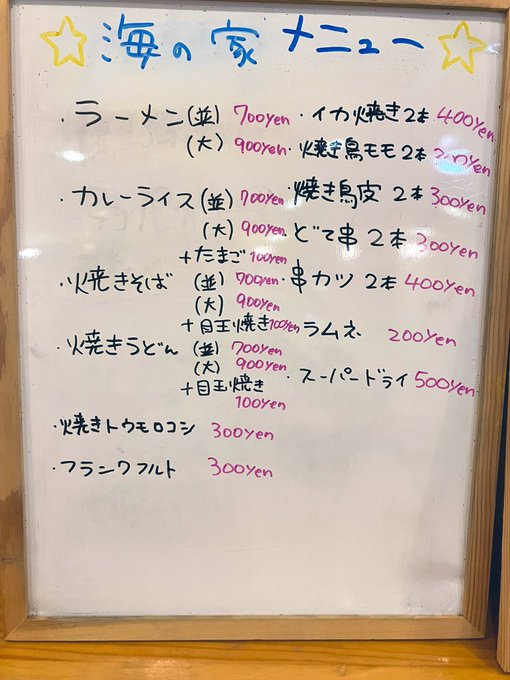 海の家 メニュー
・ラーメン(並) 700yen
(大) 900yen
・カレーライス(並) 700yen
(大) 900yen
+たまご 100yen
・焼きそば (並) 700yen
(大) 900yen
+目玉焼き 100yen
・焼きうどん (並) 700yen
(大) 900yen
+目玉焼き
100yen
・焼きトウモロコシ 300yen
・フランクフルト 300yen
・イカ焼き2本 400yen
・焼き鳥モモ2本
・焼き鳥皮 2本 300yen
・どて串 2本 300yen
・串カツ 2本 400yen
・ラムネ 200yen
・スーパードライ 500yen